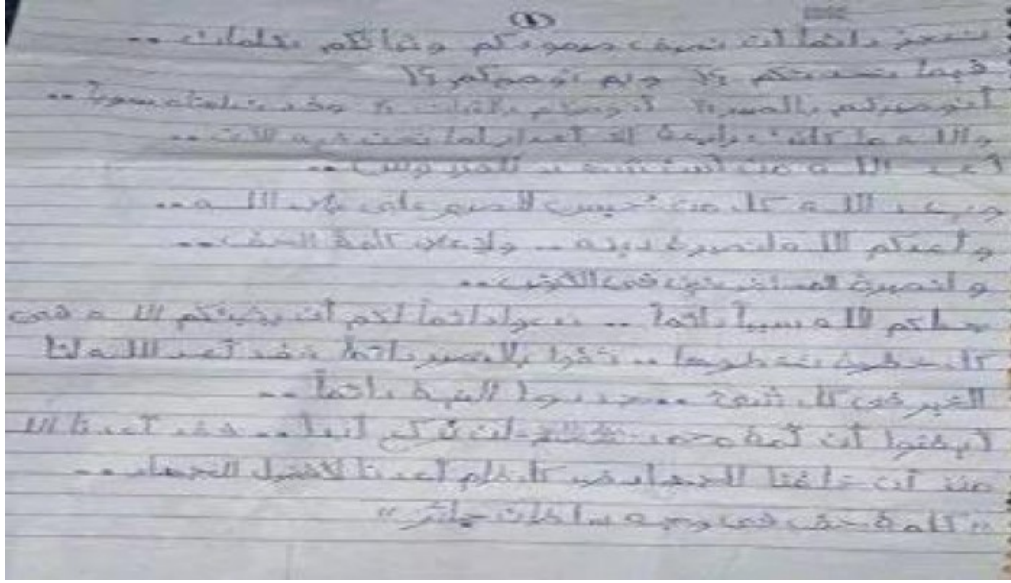 (١)
نعجز دائما أن نصف صمودكم وثباتكم بكلمات ..
فبما نحدثكم ؟! وبم نوصيكم ؟!
أنوصيكم بالصبر ؟! أنوصيكم بالثبات ؟! وقد سويا ..
والله ما كانت إلا أقدار لما نحن فيه الآن ..
أعد الله من للفردوس ..
الله كل من الله ..
وأعدكم الله لنصرة دينه .. ولإعلاء كلمة الحق ..
ولنصرة المستضعفين في الأرض ..
جعلكم الله سببا دائما .. ندعوا دائما لكم أن يثبتكم الله في
كل خطوة تخطوها .. ثقوا بالنصر دائما فقد أعد الله لنا
الخير في كل شيء .. جددوا النية دائما ..
أيقنوا أن أمة محمد لن تركع أبدا .. فقد أعدنا الله
منذ أن خلقنا للجهاد ضد كل ظلم أعدنا لأفضل الجهاد ..
"كلمة حق في وجه سلطان جائر"